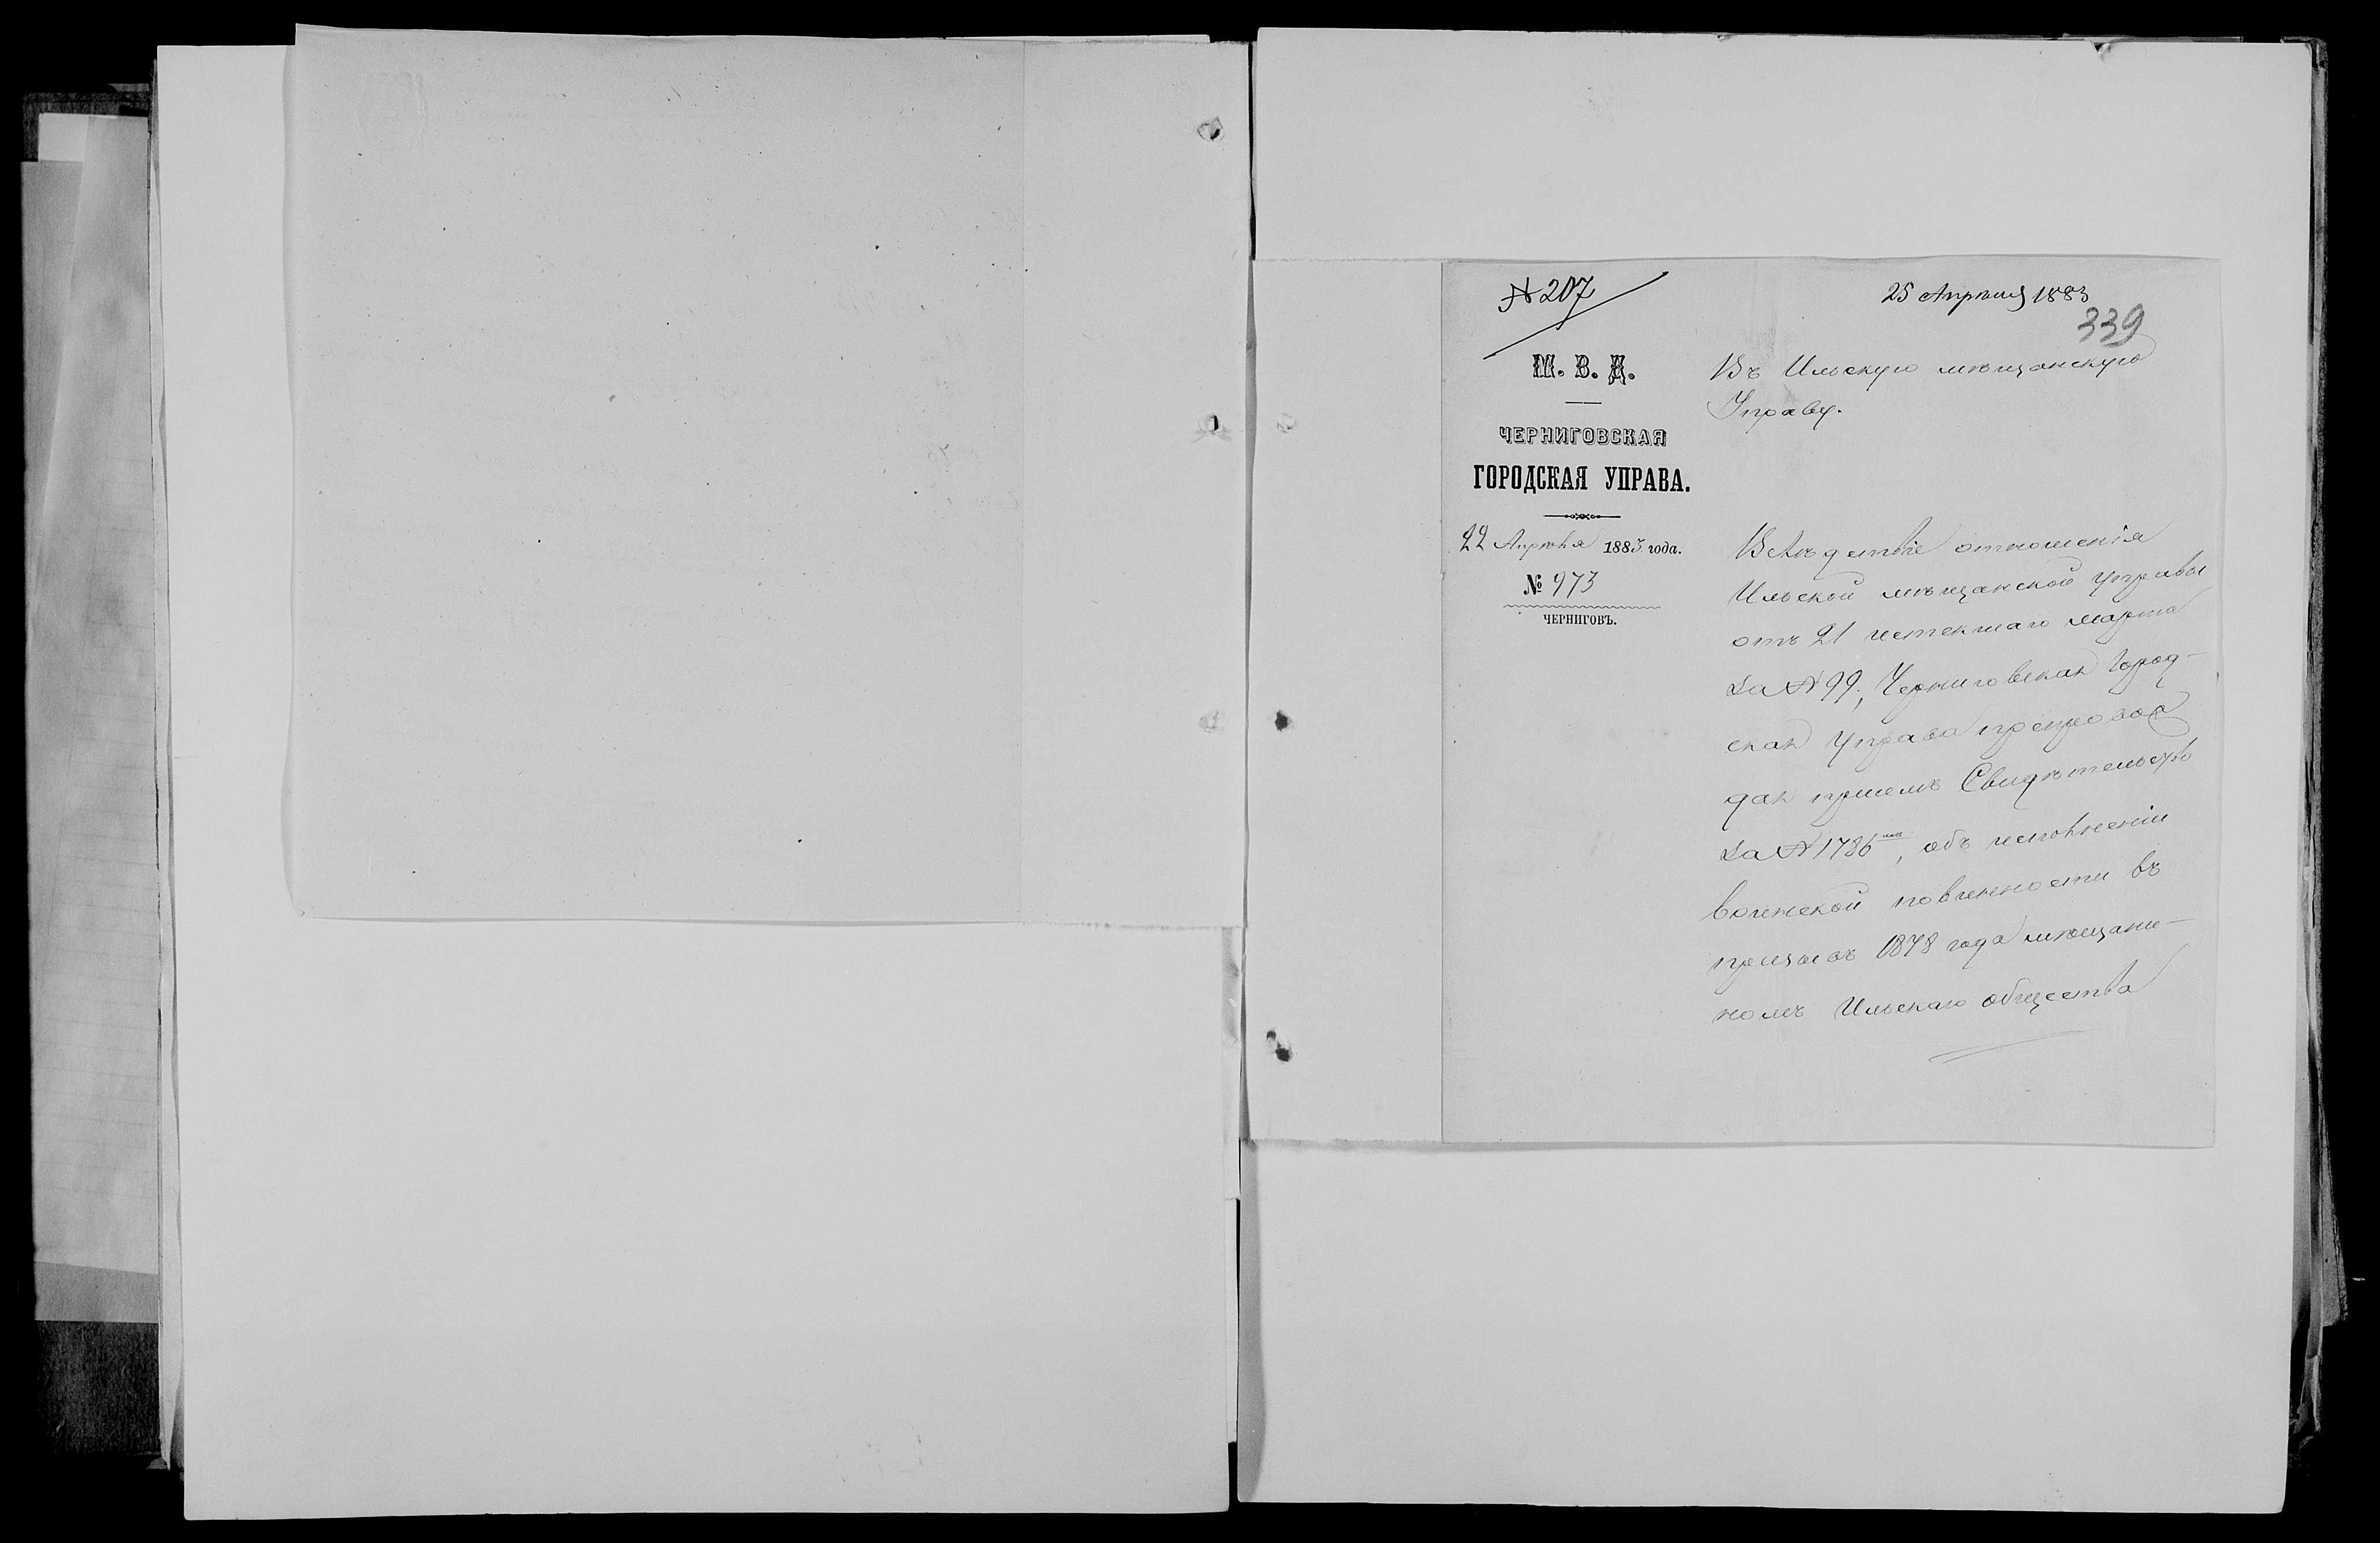 № 207
25 Апрѣля 1883
339
М. В. Д.
ЧЕРНИГОВСКАЯ
ГОРОДСКАЯ УПРАВА.
22 Апрѣля 1883 года.
№ 973
ЧЕРНИГОВЪ.
Въ Ильскую мѣщанскую
Управу.
Вслѣдствіе отношенія
Ильской мѣщанской управы
отъ 21 истекшаго марта
за № 99, Черниговская Город-
ская Управа препровож
дая присемъ Свидѣтельство
за № 1786, объ исполненіи
воинской повинности въ
призывъ 1878 года мѣщани-
номъ Ильскаго общества